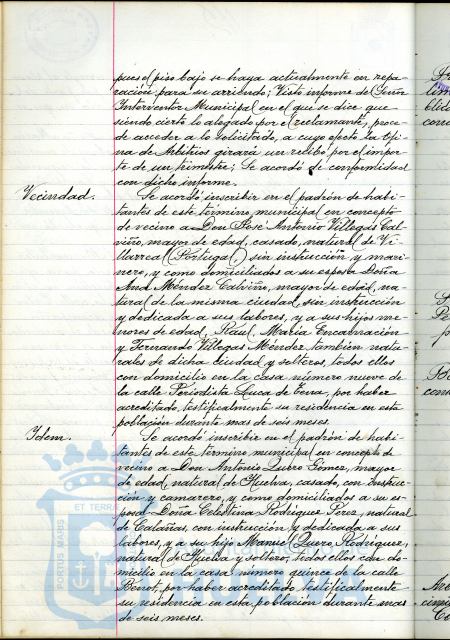 pues el piso bajo se haya actualmente en repa-
ración para su arriendo; Visto informe del Señor
Interventor Municipal en el que se dice que
siendo cierto lo alegado por el reclamante, proce-
de acceder a lo solicitado, a cuyo efecto la Ofici-
na de Arbitrios girará un recibo por el impor-
te de un trimestre; Se acordó de conformidad
con dicho informe.
Vecindad. Se acordó inscribir en el padrón de habi-
tantes de este término municipal en concepto
de vecino a Don José Antonio Villegas Cal-
viño, mayor de edad, casado, natural de Vi-
llarreal (Portugal) sin instrucción y mari-
nero, y como domiciliados a su esposa Doña
Ana Méndez Calviño, mayor de edad, na-
tural de la misma ciudad, sin instrucción
y dedicada a sus labores, y a sus hijos me-
nores de edad, Raul, María Encarnación
y Fernando Villegas Méndez también natu-
rales de dicha ciudad y solteros, todos ellos
con domicilio en la casa número nueve de
la calle Periodista Luca de Tena, por haber
acreditado testificalmente su residencia en esta
población durante mas de seis meses.
Ydem. Se acordó inscribir en el padrón de habi-
tantes de este término municipal en concepto de
vecino a Don Antonio Quero Gómez, mayor
de edad, natural de Huelva, casado, con instruc-
ción y camarero, y como domiciliados a su es-
posa Doña Celestina Rodríguez Pérez, natural
de Calañas, con instrucción y dedicada a sus
labores, y a su hijo Manuel Quero Rodríguez,
natural de Huelva y soltero, todos ellos con do-
micilio en la casa número quince de la calle
Berot, por haber acreditado testificalmente
su residencia en esta población durante mas
de seis meses.
PORTUS MARIS
ET TERRÆ